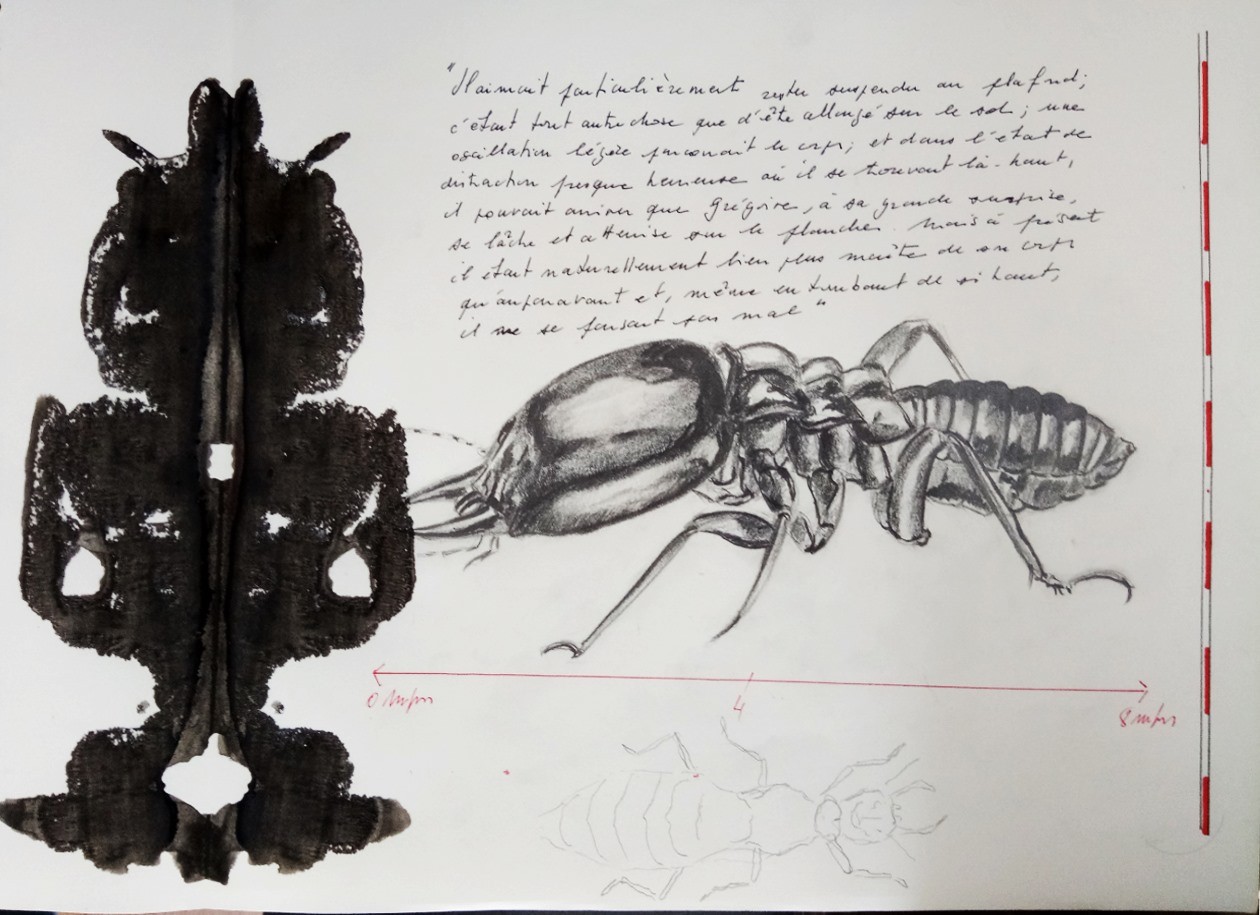 "Il aimait particulièrement rester suspendu au plafond;
c'était tout autre chose que d'être allongé sur le sol; une
oscillation légère parcourait le corps; et dans l'état de
distraction presque heureuse où il se trouvait là-haut,
il pouvait arriver que Grégoire, à sa grande surprise,
se lâche et atterrisse sur le plancher. Mais à présent
il était naturellement bien plus maître de son corps
qu'auparavant et, même en tombant de si haut,
il ne se faisait pas mal"
0
4
8